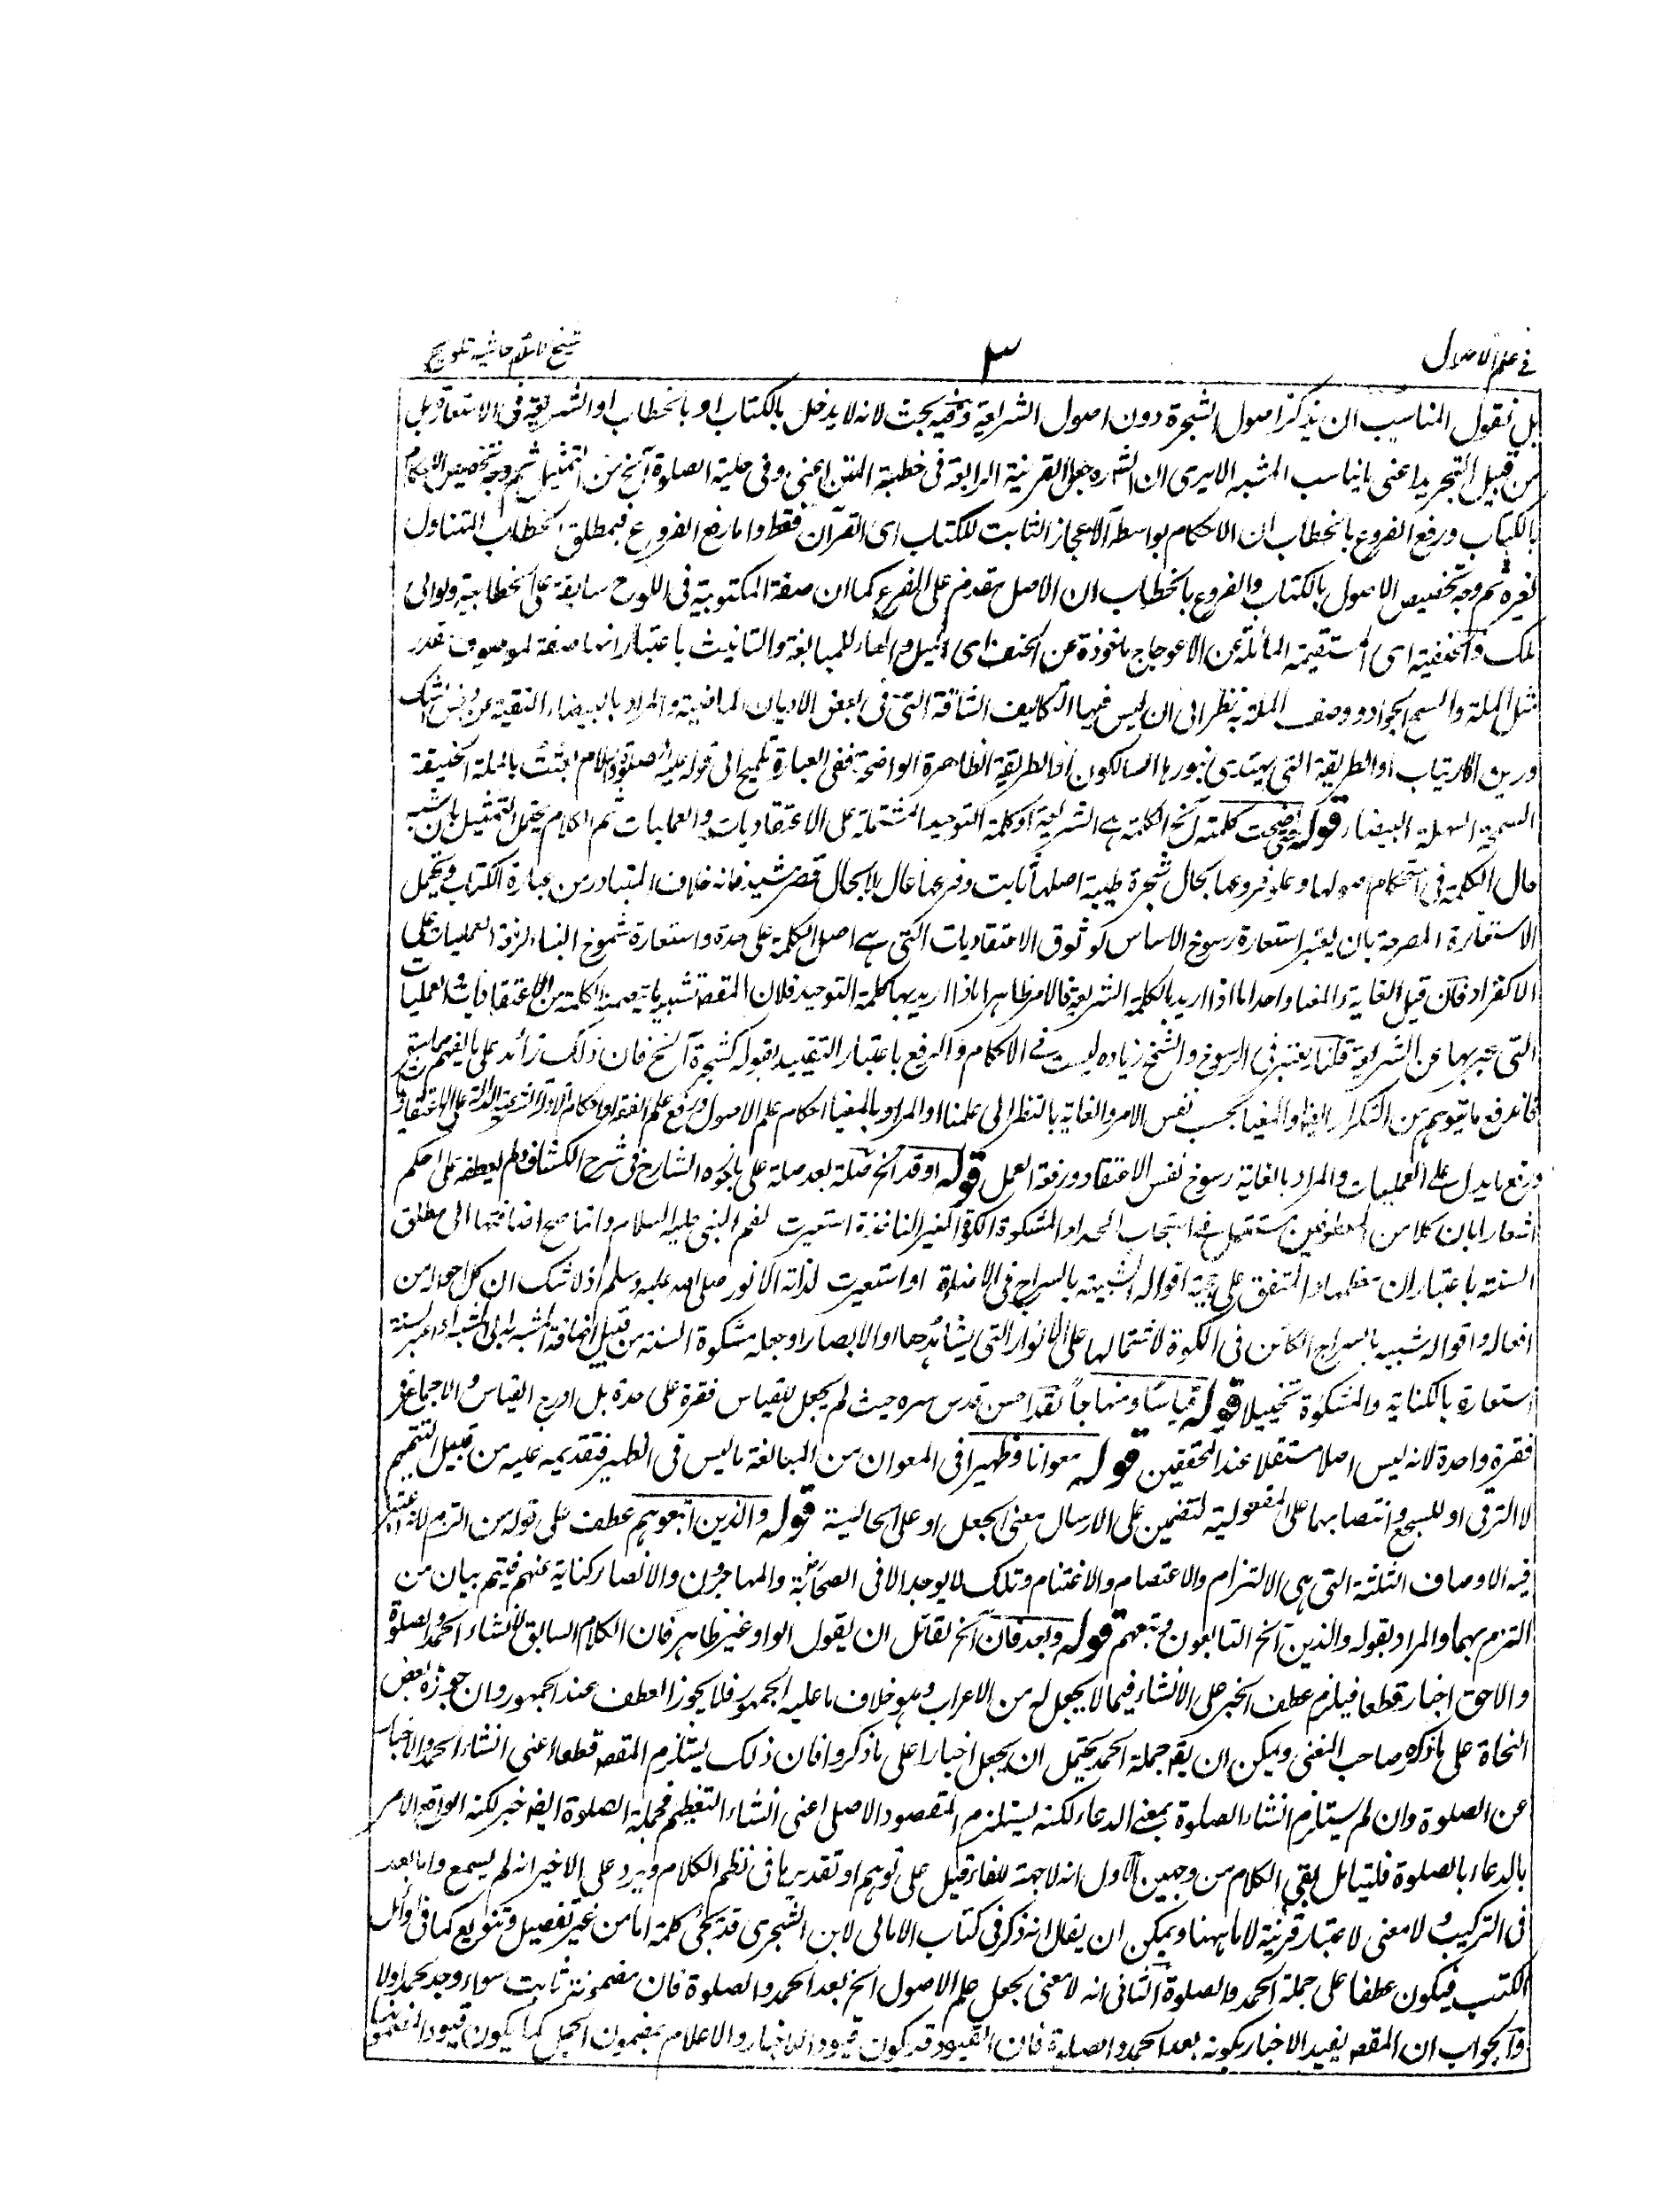 في علم الاصول
٣
شيخ الاسلام حاشيه تلويح
بل نقول المناسب ان يذكر اصول الشجرة دون اصول الشريعة وفيه بحث لانه لا يدخل بالكتاب او بالخطاب او الشريعة فى الاستعارة بل
من قبيل التجريد اعنى ما يناسب المشبه الا يرى ان الشارح جعل القرينة الرابعة فى خطبة المتن اعنى وفى حلية الصلوة آلخ من التمثيل ثم وجه تخصيص الاحكام
بالكتاب ورفع الفروع بالخطاب ان الاحكام بواسطة الاعجاز الثابت للكتاب اى القرآن فقط واما رفع الفروع فبمطلق الخطاب المتناول
لغيره ثم وجه تخصيص الاصول بالكتاب والفروع بالخطاب ان الاصل مقدم على الفرع كما ان صفة المكتوبية فى اللوح سابقة على الخطابية ولوالى
ملك والحنفية اى المستقيمة المائلة عن الاعوجاج ماخوذة من الحنف اى الميل والهاء للمبالغة والتانيث باعتبار انها صفة لموصوف مقدر
مثل الملة والسمح الجواد ووصف الملة به نظرا الى ان ليس فيها التكاليف الشاقة التى فى بعض الاديان الماضية والمراد بالبيضاء النقية عن دنس الشك
ورين الارتياب او الطريقة التى يهتدى بنورها السالكون او الطريقة الظاهرة الواضحة ففى العبارة تلميح الى قوله عليه الصلوة والسلام بعثت بالملة الحنيفة
السمحة السهلة البيضاء قوله حتى اضحت كلمته آلخ الكلمة هى الشريعة او كلمة التوحيد المشتملة على الاعتقاديات والعمليات ثم الكلام يحتمل التمثيل بان شبه
حال الكلمة فى استحكام اصولها وعلو فروعها بحال شجرة طيبة اصلها ثابت وفرعها عال لا بحال قصر مشيد فانه خلاف المتبادر من عبارة الكتاب ويحتمل
الاستعارة المصرحة بان يعتبر استعارة رسوخ الاساس لوثوق الاعتقاديات التى هى اصل الكلمة على حدة واستعارة شموخ البناء لرفعة العمليات على
الانفراد فان قيل الغاية والمغيا واحد اما اذا اريد بالكلمة الشريعة فالامر ظاهر اما اذا اريد بها كلمة التوحيد فلان المقصد تشبيه ما يتضمنه الكلمة من الاعتقاديات والعمليات
التى عبر بها عن الشريعة قلنا يعتبر فى الرسوخ والشمخ زيادة ليست فى الاحكام والرفع باعتبار التقييد بقوله كشجرة آلخ فان ذلك زائد على ما يفهم مما سبق
فاندفع ما يتوهم من التكرار ايضا والمغيا بحسب نفس الامر والغاية بالنظر الى علمنا او المراد بالمغيا احكام علم الاصول ورفع علم الفقه او احكام الادلة الشرعية الدالة على الاعتقاديات
ورفع ما يدل على العمليات والمراد بالغاية رسوخ نفس الاعتقاد ورفعة العمل قوله اوقد آلخ صلة بعد صلة على ما جوزه الشارح فى شرح الكشاف ولم يعطفه على احكم
اشعارا بان كلا من المعطوفين مستقل فى استجاب الحمد او المشكوة الكوة الغير النافذة استعيرت لفم النبى عليه السلام وانما صح اضافتها الى مطلق
السنة باعتبار ان معظمها المتفق على حجيته اقواله الشبيهة بالسراج فى الاضاءة او استعيرت لذاته الانور صلى الله عليه وسلم اذ لا شك ان كل احواله من
افعاله واقواله شبيه بالسراج الكائن فى الكوة لاشتمالها على الانوار التى يشاهدها اولوا الابصار او جعل مشكوة السنة من قبيل اضافة المشبه به الى المشبه او اعتبر السنة
استعارة بالكناية والمشكوة تخييلا قوله قياسا ومنهاجا لقد احسن قدس سره حيث لم يجعل للقياس فقرة على حدة بل ادرج القياس والاجماع فى
فقرة واحدة لانه ليس اصلا مستقلا عند المحققين قوله معوانا وظهيرا فى المعوان من المبالغة ما ليس فى الظهير فتقديمه عليه من قبيل التتميم
لا الترقى او للسجع وانتصابهما على المفعولية لتضمين على الارسال معنى الجعل او على الحالية قوله والذين اتبعوهم عطف على قوله من التزم لانه اعتبر
فيه الاوصاف الثلثة التى هى الالتزام والاعتصام والاغتنام وتلك لا يوجد الا فى الصحابة والمهاجرون والانصار كناية عنهم فيتم بيان من
التزم بهما والمراد بقوله والذين آلخ التابعون وتبعهم قوله وبعد فان آلخ لقائل ان يقول الواو غير ظاهر فان الكلام السابق لانشاء الحمد والصلوة
واللاحق اخبار قطعا فيلزم عطف الخبر على الانشاء فيما لا يجعل له من الاعراب وهو خلاف ما عليه الجمهور فلا يجوز العطف عند الجمهور وان جوزه بعض
النحاة على ما ذكره صاحب المغنى ويمكن ان يقه جملة الحمد يحتمل ان يجعل اخبارا على ما ذكروا فان ذلك يستلزم المقصد قطعا اعنى انشاء الحمد والاخبار
عن الصلوة وان لم يستلزم انشاء الصلوة بمعنى الدعاء لكنه يستلزم المقصود الاصلى اعنى انشاء التعظيم فجملة الصلوة ايضا خبر لكنه الواقع الامر
بالدعاء بالصلوة فليتامل بقى الكلام من وجهين الاول انه لا جهة للفاء قيل على توهم او تقدير اما فى نظم الكلام ويرد على الاخير انه لم يسمع واما بعد
فى التركيب ولا معنى لاعتبار قرينة لاما ههنا ويمكن ان يقال انه ذكر فى كتاب الامالى لابن الشجرى قد يجئ كلمة اما من غير تفصيل وتنويع كما فى اوائل
الكتب فيكون عطفا على جملة الحمد والصلوة الثانى انه لا معنى لجعل علم الاصول آلخ بعد الحمد والصلوة فان مضمونه ثابت سواء وجد حمد اولا
والجواب ان المقصد يفيد الاخبار بكونه بعد الحمد والصلوة فان القيود قد يكون قيود الاخبار والاعلام بمضمون الجمل كما يكون قيودا لمضمونها